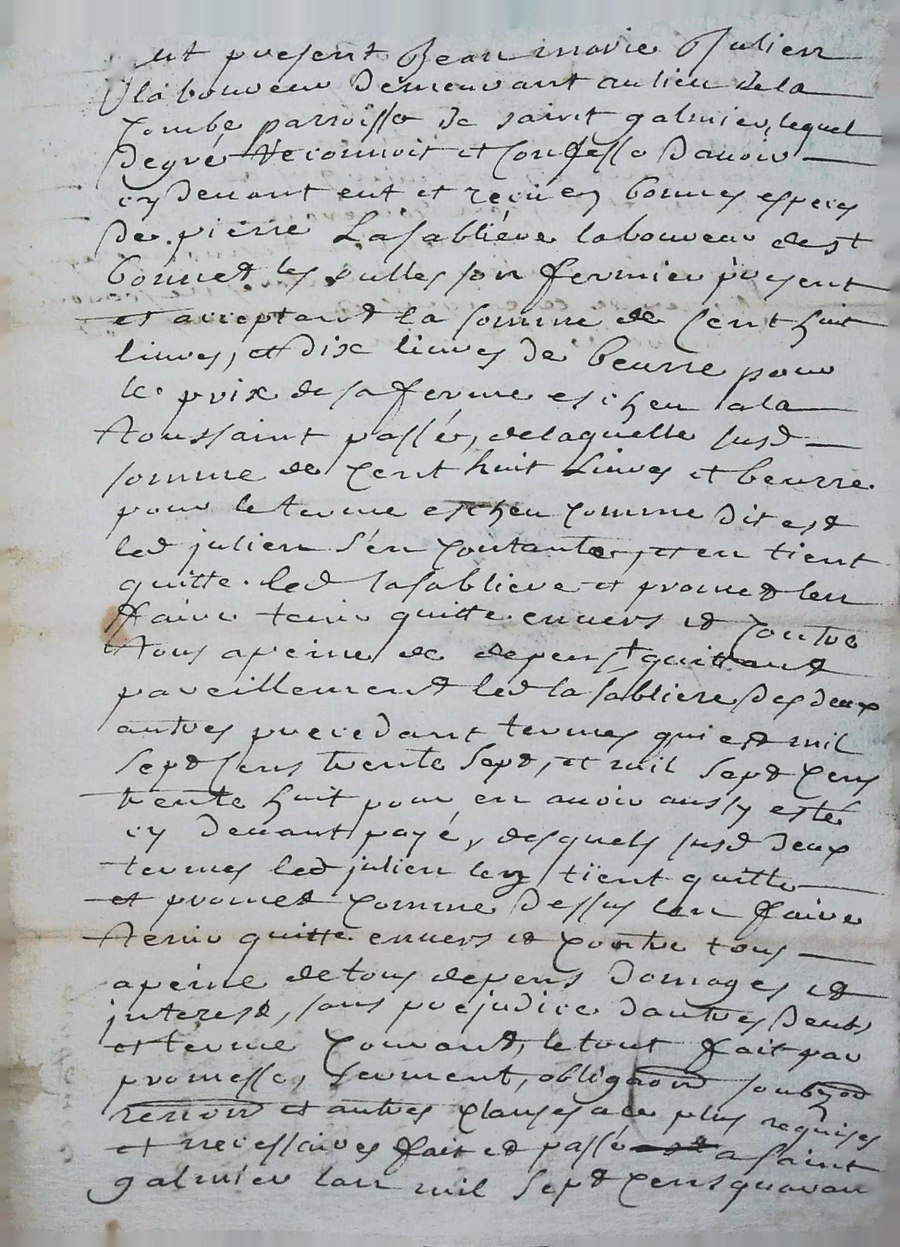 ut present Jean marie Julien
laboureur demeurant au lieu de la
Combe parroisse de saint galmier, lequel
de gré reconnoit et confesse d'avoir
cy devant eut et receu en bonnes especes
de pierre Lasabliere laboureur de st
bonnet les oulles son fermier present
et acceptant la somme de cent huit
livres, et dix livres de beurre pour
le prix de sa ferme escheu a la
toussaint passée, de laquelle susd
somme de cent huit Livres et beurre
pour le terme escheu comme dit est
led julien s'en contante, et en tient
quitte led lasabliere et promet l'en
faire tenir quitte envers et contre
tous a peine de depens quittant
pareillement led la sabliere des deux
autres precedant termes qui est mil
sept cens trente sept, et mil sept cens
trente huit pour en avoir aussy esté
cy devant payé, desquels susd deux
termes led julien len tient quitte
et promet comme dessus len faire
tenir quitte envers et contre tous
a peine de tous depens domages et
interest, sans prejudice d'autres deubs
et terme courant, le tout fait par
promesse, serment, obligaon soub^on
renon et autres clauses a ce plus requises
et necessaires fait et passé a saint
galmier lan mil sept cens quaran